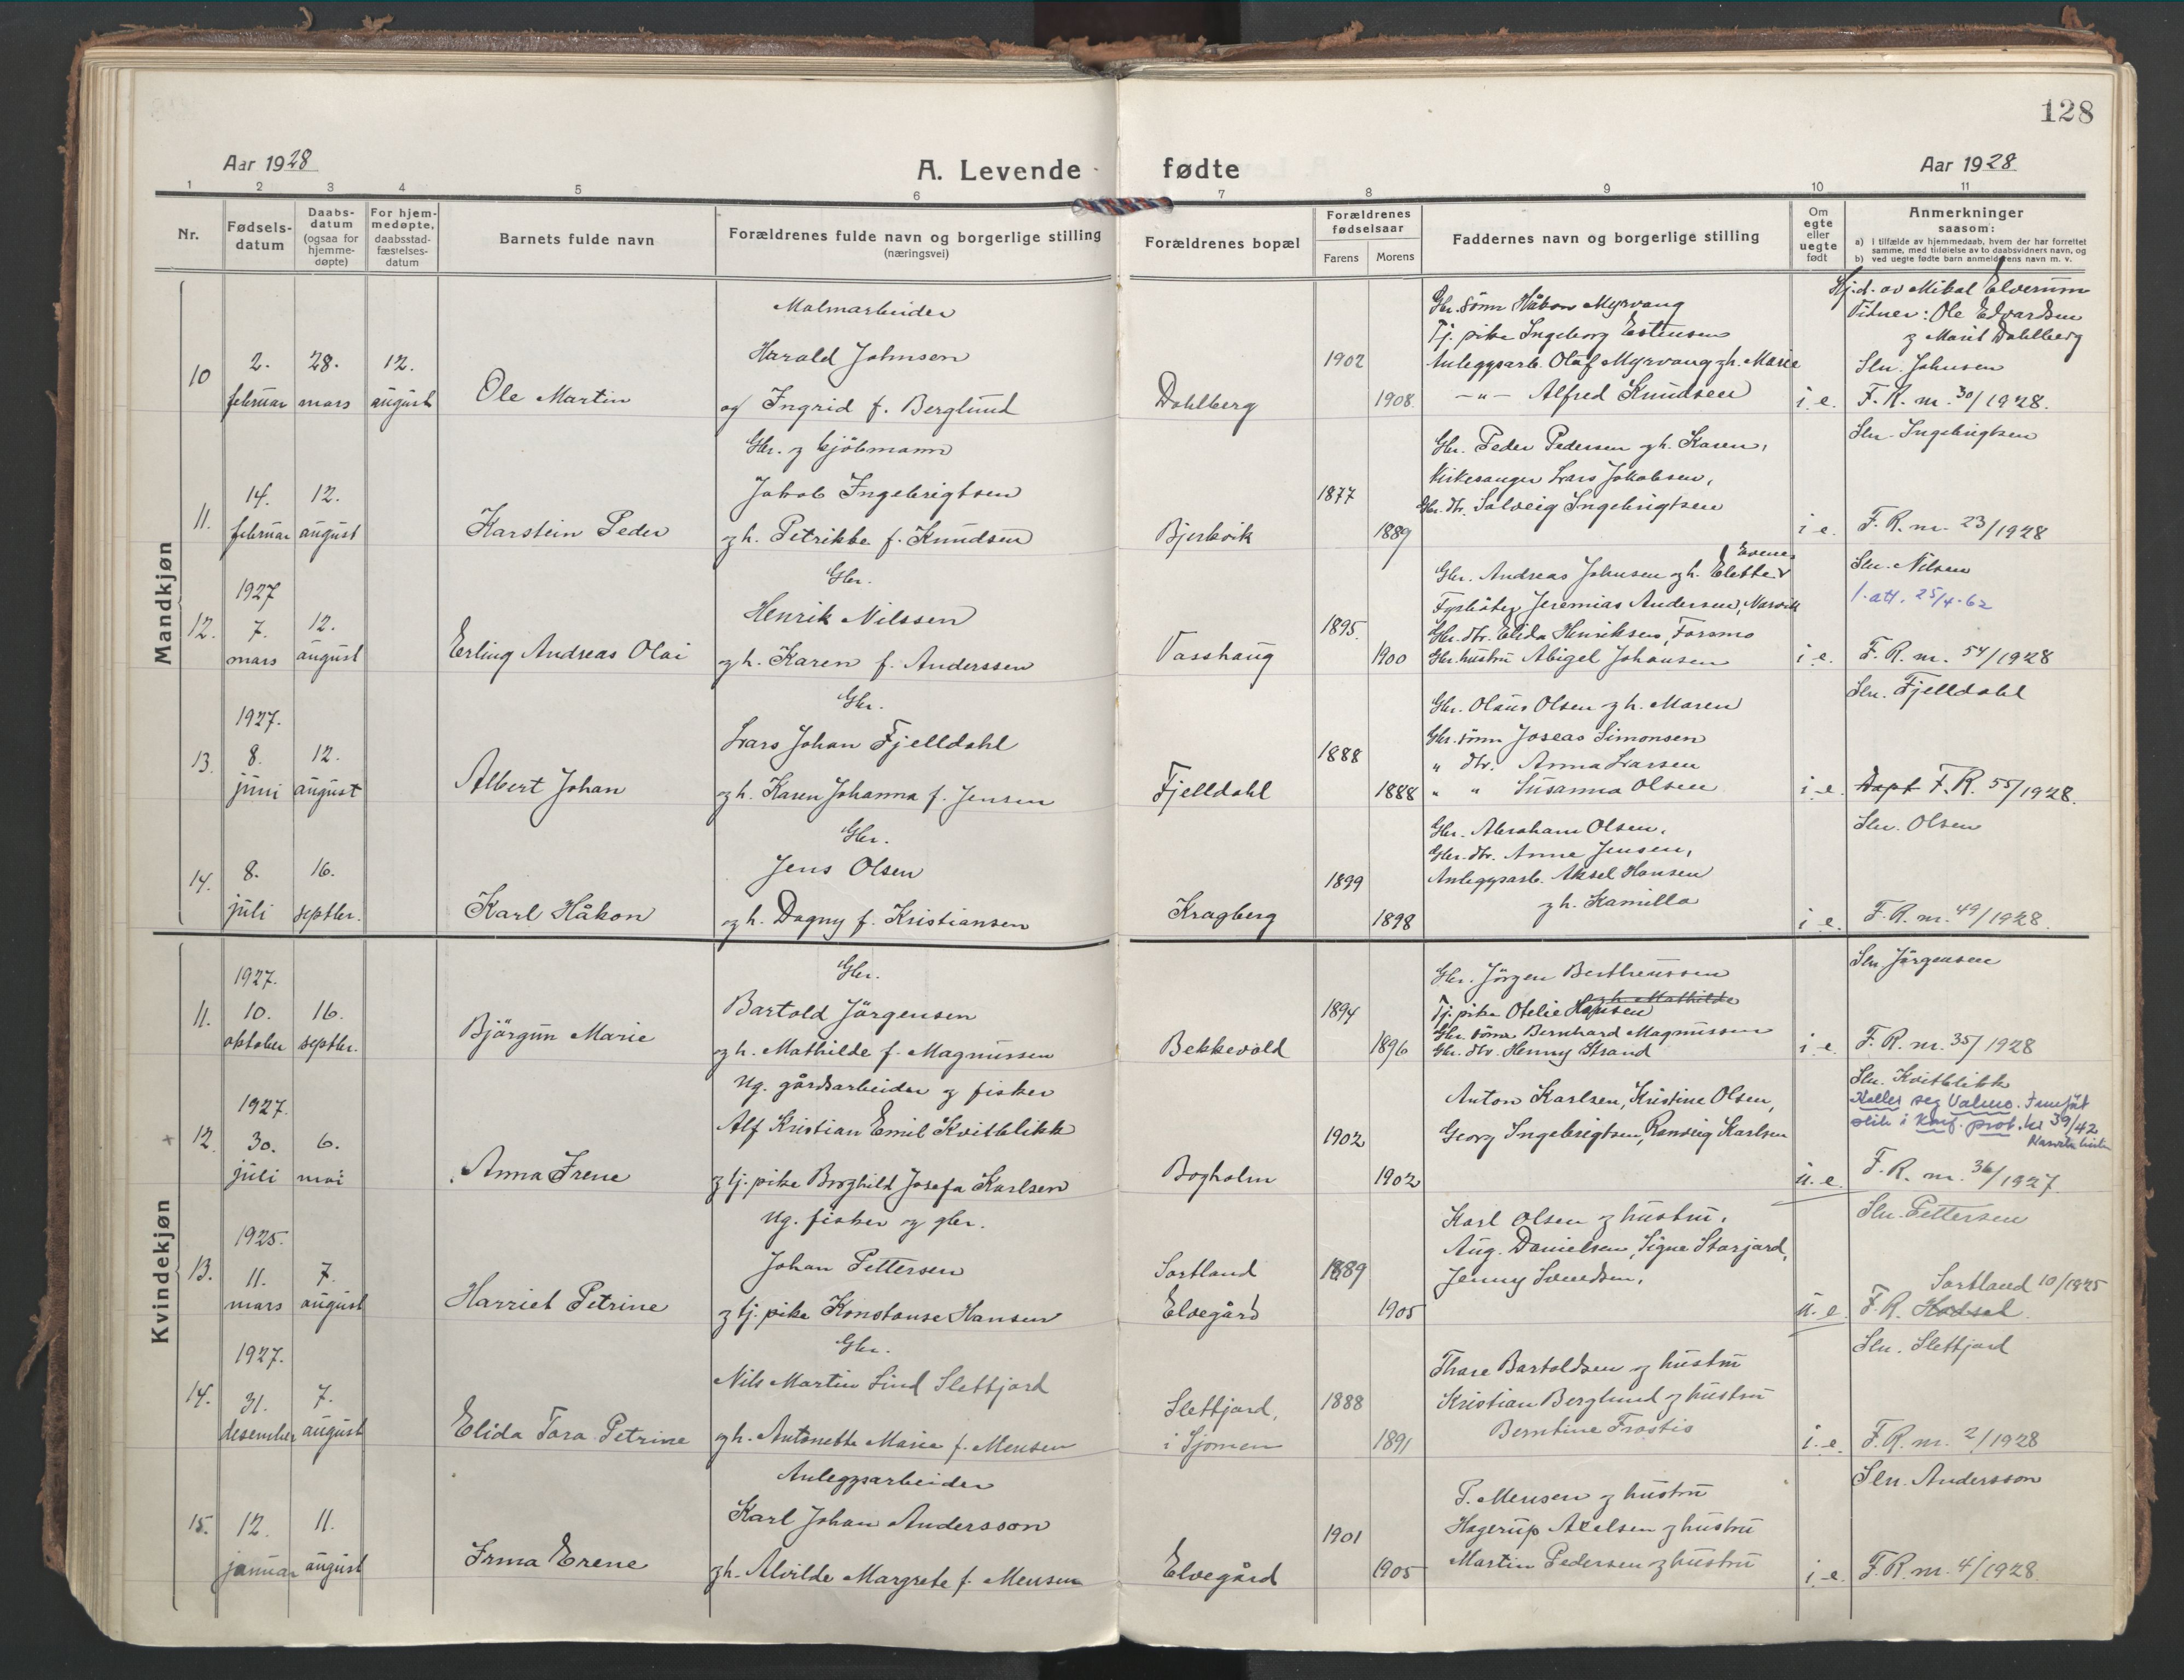 128
Aar 1928
A. Levende fødte
Aar 1928
1 2 3 4 5 6 7 8 9 10 11
Nr.
Fødsels-
datum
Daabs-
datum
(ogsaa for
hjemme-
døpte)
For hjem-
medøpte,
daabsstad-
fæstelses-
datum
Barnets fulde navn
Forældrenes fulde navn og borgerlige stilling
(næringsvei)
Forældrenes bopæl
Forældrenes
fødselsaar
Farens
Morens
Faddernes navn og borgerlige stilling
Om
egte
eller
uegte
født
Anmerkninger
saasom:
a) i tilfælde av hjemmedaab, hvem der har forrettet
samme, med tilføielse av to daabsvidners navn, og
b) ved uegte fødte barn anmelderens navn m. v.
Mandkjøn
10
2.
februar
28.
mars
12.
august
Ole Martin
Malmarbeider
Harald Johnsen
og Ingrid f. Berglund
Dahlberg
1902
1908.
Gbr. sønn Håkon Myrvang
Tj. pike Ingeborg Estensen
Anleggsarb. Olaf Myrvang og h. Marie
-"- Alfred Knudsen
i. e.
Hj.d. av Mikal Elverum
Vitner: Ole Edvardsen
og Marit Dahlberg
Sln. Johnsen
F. R. nr. 30/1928.
11.
14.
februar
12.
august
Karstein Peder
Gbr. og kjöbmann
Jakob Ingebrigtsen
og h. Petrikke f. Knudsen
Bjerkvik
1877
1889
Gbr. Peder Pedersen og h. Karen,
Kirkesanger Lars Jakobsen,
Gbr. dtr. Solveig Ingebrigtsen
i e.
Sln. Ingebrigtsen
F. R. nr. 23/1928
12.
1927
7.
mars
12.
august
Erling Andreas Olai
Gbr.
Henrik Nilssen
og h. Karen f. Anderssen
Vasshaug
1895.
1900
Evenes
Gbr. Andreas Johnsen og h. Elebbe
Fyrböter Jeremias Andersen, Narvik
Gbr. dtr. Elida Henriksen, Forsmo
Gbr. hustru Abigel Johansen
i e.
Sln. Nilsen
1. att. 25/4-62
F. R. nr. 54/1928
13.
1927.
8.
juni
12.
august
Albert Johan
Gbr.
Lars Johan Fjelldahl
og h. Karen Johanna f. Jensen
Fjelldahl
1888
1888
Gbr. Olaus Olsen og h. Maren
Gbr. sönn Joseas Simonsen
" dtr. Anna Larsen
" " Susanna Olsen
i e.
Sln. Fjelldahl
Døpt F. R. 55/1928.
14.
8.
juli
16.
septbr.
Karl Håkon
Gbr.
Jens Olsen
og h. Dagny f. Kristiansen
Kragberg
1899
1898
Gbr. Abraham Olsen,
Gbr. dtr. Anne Jensen,
Anleggsarb. Aksel Hansen
og h. Kamilla
i e.
Sln. Olsen
F. R. nr. 49/1928.
Kvindekjøn
11.
1927.
10.
oktober
16.
septbr.
Bjärgun Marie
Gbr.
Bartold Jörgensen
og h. Mathilde f. Magnussen
Bekkevold
1894
1896
Gbr. Jörgen Bertheussen
og h. Mathilde
Tj. pike Otelie Hansen
Gbr. sönn Bernhard Magnussen
Gbr. dtr. Henny Strand
i e.
Sln Jörgensen
F. R. nr. 35/1928
12.
1927.
30.
juli
6.
mai
Anna Irene
Ug. gårdsarbeider og fisker
Alf Kristian Emil Kvitblikk
og tj. pike Borghild Josefa Karlsen
Bogholm
1902
1902
Anton Karlsen, Kristine Olsen,
Georg Ingebrigtsen, Ranveig Karlsen
u. e.
Sln. Kvitblikk
Kaller seg Valmo.
i Konf. prot. 39/42
F. R. nr. 36/1927.
13.
1925.
11.
mars
7.
august
Harriet Petrine
Ug. fisker og gbr.
Johan Pettersen
og tj. pike Konstanse Hansen
Sortland
Elvegård
1889
1905
Karl Olsen og hustru,
Aug. Danielsen, Signe Storjord,
Jenny Svendsen,
u. e.
Sln. Pettersen
Sortland 10/1925
F. R. Hadsel
14.
1927.
31.
desember
7.
august
Elida Tora Petrine
Gbr.
Nils Martin Lind Slettjord
og h. Antonette Marie f. Mensen
Slettjord,
i Sjomen
1888
1891
Thore Bartoldsen og hustru
Kristian Berglund og hustru
Berntine Frostis
i. e.
Sln. Slettjord
F. R. nr. 2/1928
15.
12.
januar
11.
august
Irma Erene
Anleggsarbeider
Karl Johan Andersson
og h. Alvilde Margrete f. Mensen
Elvegård
1901
1905
P. Mensen og hustru
Hagerup Axelsen og hustru
Martin Pedersen og hustru
i. e.
Sln. Andersson
F. R. nr. 4/1928.